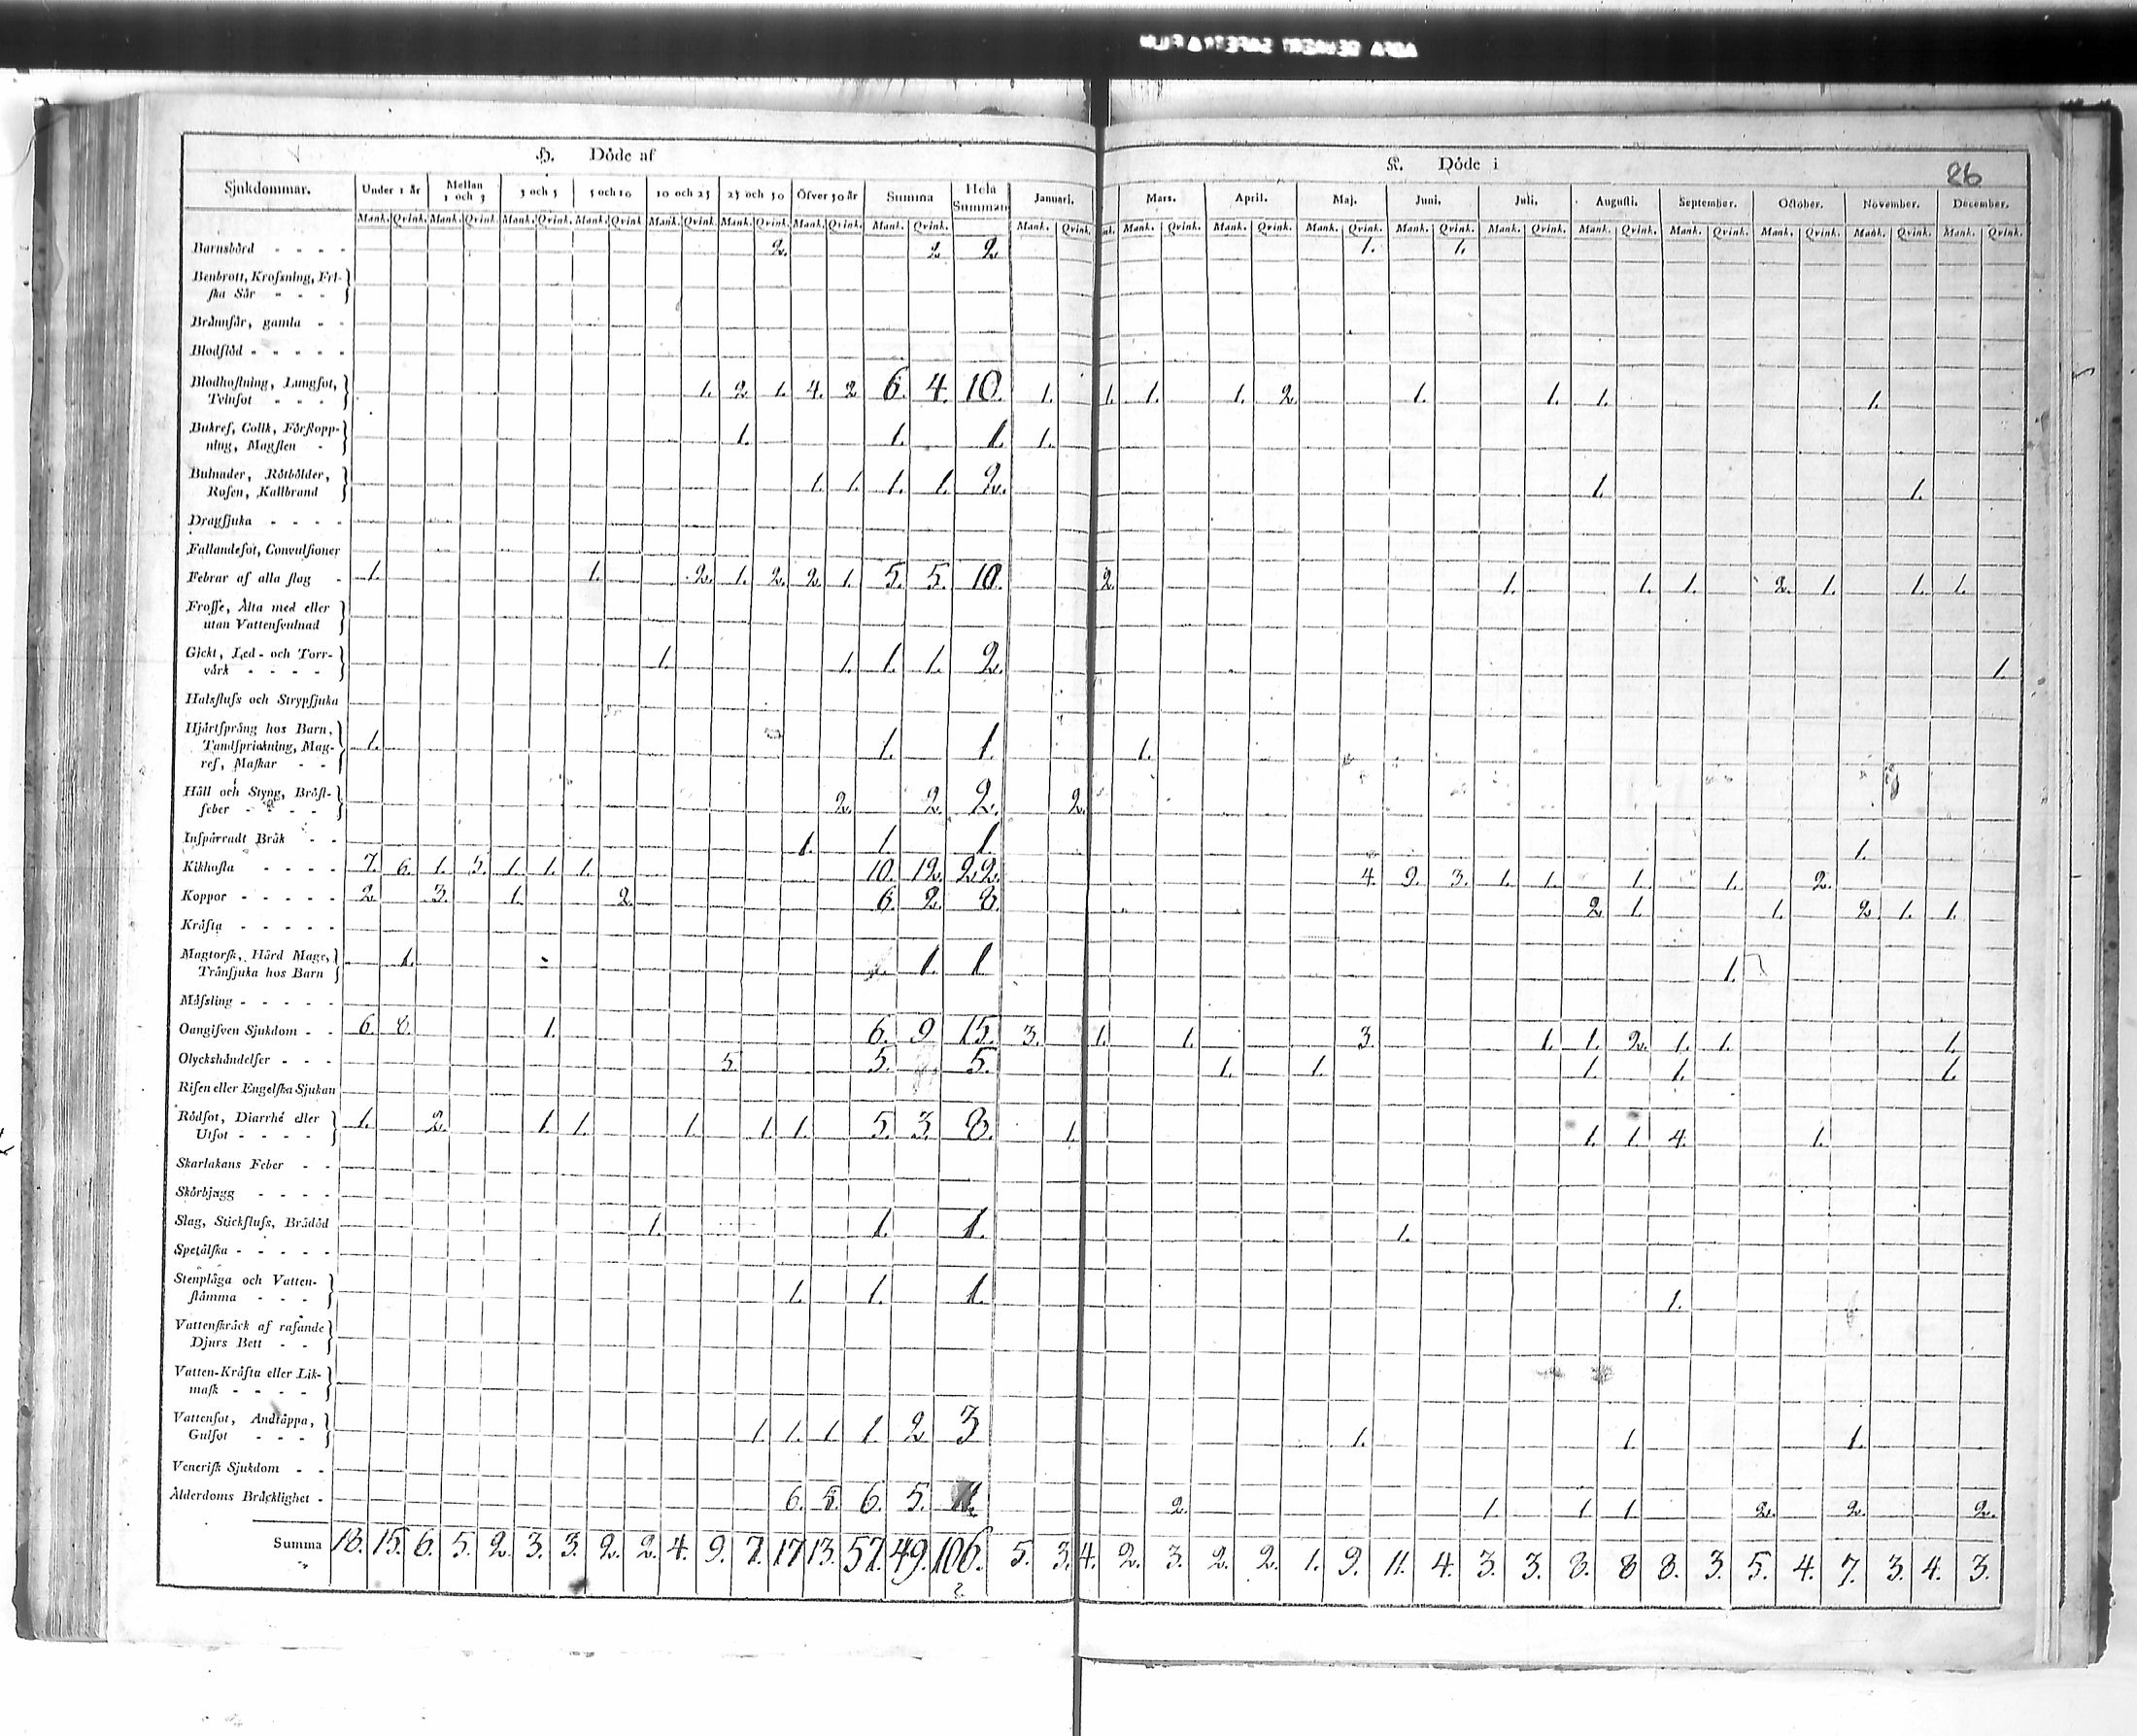 H. Döde af
K. Döde i
86
Sjukdommar. Under 1 år Mellan 1 och 3 3 och 5 5 och 10 10 och 25 25 och 50 Öfver 50 år Summa Hela Summan Januari. Mars. April. Maj. Juni. Juli. Augusti. September. October. November. December.
Mank. Qvink. Mank. Qvink. Mank. Qvink. Mank. Qvink Mank. Qvink. Mank. Qvink. Mank. Qvink. Mank. Qvink. Mank. Qvink. Mank. Qvink. Mank. Qvink. Mank. Qvink. Mank. Qvink. Mank. Qvink. Mank. Qvink. Mank. Qvink. Mank. Qvink. Mank. Qvink. Mank. Qvink.
Barnsbörd - - - - 2. 2 2 1. 1.
Benbrott, Krosning, Fri-
ska Sår - - -
Brännsår, gamla - -
Blodflöd - - - - -
Blodhostning, Lungsot,
Tvinsot - - - 1. 2 1. 4. 2 6. 4. 10. 1. 1. 1. 1. 2 1. 1. 1. 1.
Bukref, Colik, Förstopp-
ning, Magsten - 1. 1. 1. 1.
Bulnader, Rötbölder,
Rosen, Kallbrand 1. 1. 1. 1. 2. 1. 1.
Dragsjuka - - - -
Fallandesot, Convulsioner
Febrar af alla slag - 1. 1. 2. 1. 2. 2. 1. 5. 5. 10. 2. 1. 1. 1. 2. 1. 1. 1.
Frossa, Älta med eller
utan Vattensvulnad
Gickt, Led- och Torr-
värk - - - - 1. 1. 1. 1. 2. 1.
Halsfluss och Strypsjuka
Hjärtsprång hos Barn,
Tandsprickning, Mag-
ref, Maskar - - 1. 1. 1. 1.
Håll och Styng, Bröst-
feber - - - - 2. 2. 2. 2.
Inspärradt Bråk - - 1. 1. 1. 1.
Kikhosta - - - - 7. 6. 1. 5. 1. 1. 1. 10. 12. 22. 4. 9. 3. 1. 1. 1. 1. 2.
Koppor - - - - - 2. 3. 1. 2. 6. 2. 8. 2 1. 1. 2. 1. 1.
Kräfta - - - - -
Magtorsk, Hård Mage,
Trånsjuka hos Barn 1. 1. 1 1.
Mässling - - - - -
Oangifven Sjukdom - - 6. 8. 1. 6. 9 15. 3. 1. 1. 3. 1. 1. 2. 1. 1. 1.
Olyckshändelser - - - 5. 5. 5. 1. 1. 1. 1. 1.
Risen eller Engelska Sjukan
Rödsot, Diarrhé eller
Utsot - - - - 1. 2. 1. 1. 1. 1. 1. 5. 3. 8. 1. 1. 1. 4. 1.
Skarlakans Feber - -
Skörbjugg - - - -
Slag, Stickfluss, Brådöd 1. 1. 1. 1.
Spetälska - - - - -
Stenplåga och Vatten-
stämma - - - 1. 1. 1. 1.
Vattenskräck af rasande
Djurs Bett - -
Vatten-Kräfta eller Lik-
mask - - - -
Vattensot, Andtäppa,
Gulsot - - - 1. 1. 1. 1. 2 3 1. 1. 1.
Venerisk Sjukdom - -
Ålderdoms Bräcklighet - 6. 5. 6. 5. 11. 2. 1. 1. 1. 2. 2. 2.
Summa 18. 15. 6. 5. 2. 3. 3. 2. 2. 4. 9. 7. 17 13. 57. 49. 106. 5. 3. 4. 2. 3. 2. 2. 1. 9. 11. 4. 3. 3. 8. 8 8. 3. 5. 4. 7. 3. 4. 3.